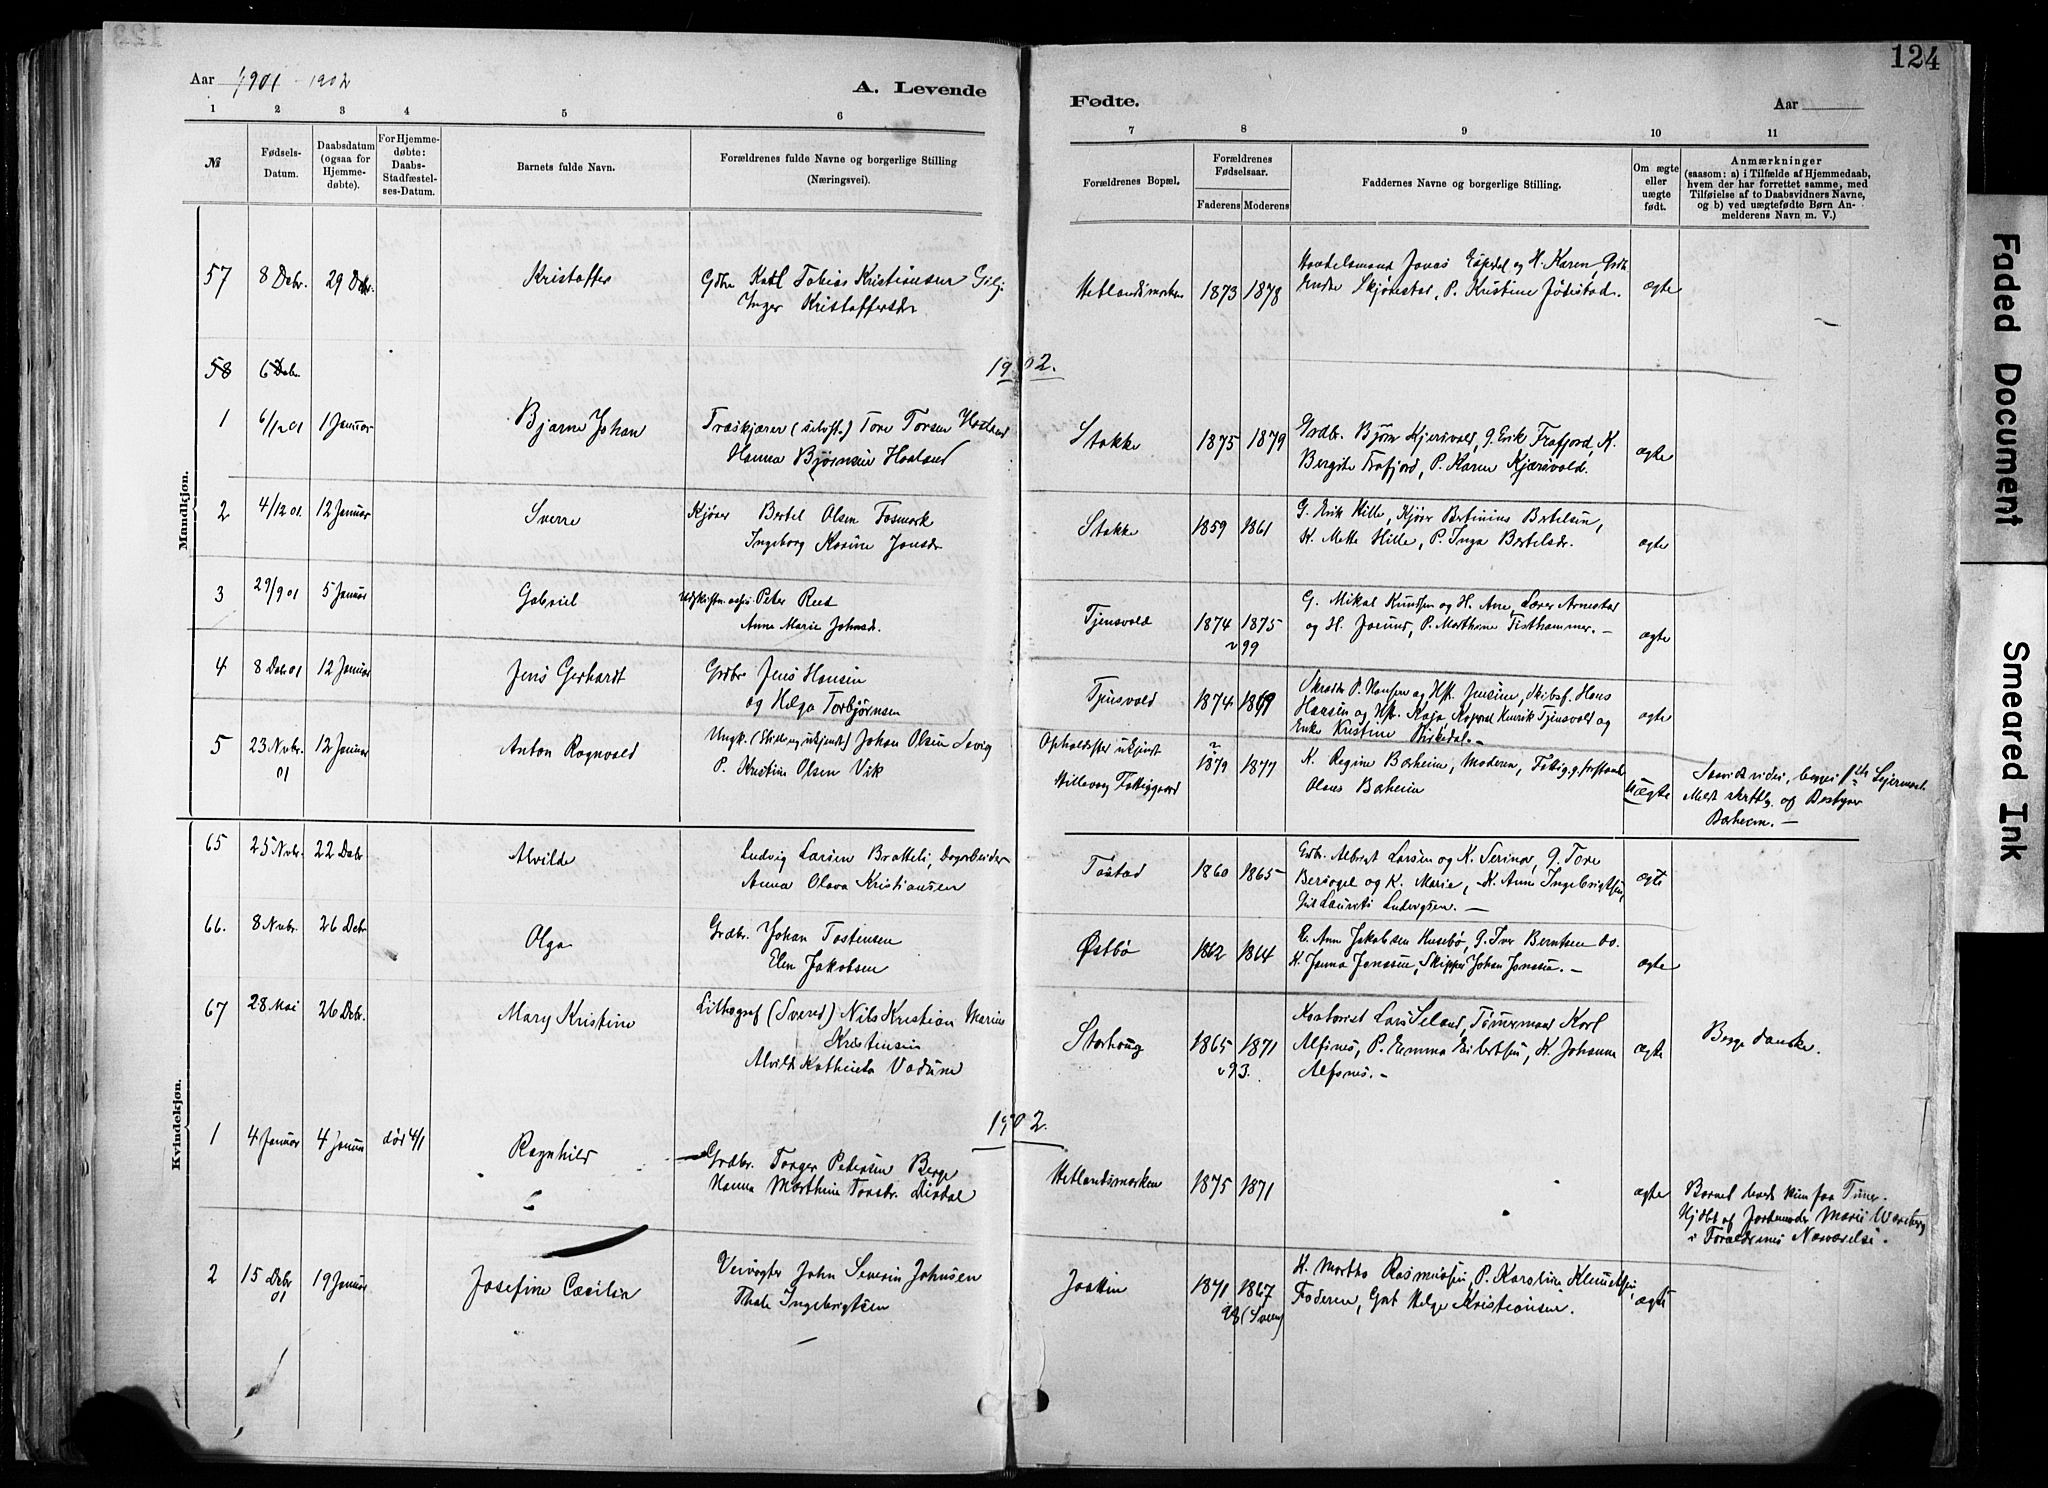 123
124
Aar 1901 - 1902
A. Levende
Fødte.
Aar
1 2 3 4 5 6 7 8 9 10 11
№
Fødsels-
Datum.
Daabsdatum
(ogsaa for
Hjemme-
døbte).
For Hjemme-
døbte:
Daabs-
Stadfæstel-
ses-Datum.
Barnets fulde Navn.
Forældrenes fulde Navne og borgerlige Stilling
(Næringsvei).
Forældrenes Bopæl.
Forældrenes
Fødselsaar.
Faderens Moderens
Faddernes Navne og borgerlige Stilling.
Om ægte
eller
uægte
født.
Anmærkninger
(saasom: a) i Tilfælde af Hjemmedaab,
hvem der har forrettet samme, med
Tilføielse af to Daabsvidners Navne,
og b) ved uægtefødte Børn An-
melderens Navn m. V.)
Mandkjøn.
57 8 Debr. 29 Debr. Kristoffer
Gdbr Karl Tobias Kristiansen Gilje
Inger Kristoffersdr
Hetlandsmarken 1873 1878
Handelsmand Jonas Espedal og H. Karen, Grdb
Endre Skjørestad, P. Kristine Jødestad.
ægte
58 6 Debr.
1902.
1 6/12 01 1 Januar Bjarne Johan
Træskjærer (selvst.) Tore Torsen Haaland
Hanna Bjørnsen Haaland
Stokke 1875 1879
Grdbr. Bjørn Kjersvold, G. Erik Frafjord, K.
Bergite Frafjord, P. Karen Kjærsvold.
ægte
2 4/12 01. 12 Januar Sverre
Kjører Bertel Olsen Fosmark
Ingeborg Karine Jonsdr
Stokke 1859 1861
G. Erik Hille, Kjører Bertinius Bertelsen,
K. Mette Hille, P. Inga Bertelsdr.
ægte
3 29/9 01 5 Januar Gabriel
Peter Reed
Anne Marie Johnsd.
Tjensvold 1874 1875
v 99
G. Mikal Knudsen og H. Ane, Lærer Arnestad
og H. Jorund, P. Marthine Tisthammer. -
ægte
4 8 Debr 01 12 Januar Jens Gerhardt
Grdbr Jens Hansen
og Helga Torbjørnsen
Tjensvold 1874 1869
Skrædder P. Hansen og Hst. Jensine, Skibsf. Hans
Hansen og Hst. Kaja, Henrik Tjensvold og
Enke Kristine Birkedal. -
ægte
5 23 Nvbr 01 12 Januar Anton Ragnvald
Ungk. (Stilling ukjendt) Johan Olsen Sevig
P. Kristine Olsen Vik
Opholdssted ukjendt
Hillevaag Fattiggaard
1879 1877
K. Regine Barheim, Moderen, Fattigg.forstander
Olaus Barheim
uægte
begges 1ste Leiermaal.
Meldt skriftlg. af Bestyrer
Barheim. -
Kvindekjøn.
65 25 Nvbr. 22 Debr Alvilde
Ludvig Larsen Bratteli, Dagarbeider
Anna Olava Kristiansen
Tastad 1860 1865
Grdbr. Albrigt Larsen og K. Serina, G. Tore
Bersagel og K. Marie, K. Anne Ingebrigtsen,
Laurits Ludvigsen. -
ægte
66. 8 Nvbr. 26 Debr Olga
Grdbr. Johan Tostensen
Elen Jakobsen
Østbø 1862 1864
E. Ann Jakobsen Husebø, G. Iver Berntsen do.
K. Janna Jonassen, Skipper Johan Jonassen. -
ægte
67 28 Mai 26 Debr. Mary Kristine
Lithograf (Svend) Nils Kristian Marius
Kristensen
Alvild Kathinka Vadum
Storhoug 1865 1871
v 93.
Kontorist Lars Seland, Tømmermand Karl
Alfsnes, P. Emma Eilertsen, K. Johanne
Alfsnes. -
ægte
Begge danske.
1902.
1 4 Januar 4 Januar død 4/1 Ragnhild
Grdbr. Torger Pedersen Berge
Hanna Marthine Tønsbr. Dirdal
Hetlandsmarken 1875 1871
ægte
Barnet levede kun faa Timer.
Hjdbt af Jordemoder Marie Wareberg
i Forældrenes Nærværelse.
2 15 Debr 01 19 Januar Josefine Cæcilia
Veivogter John Severin Johnsen
Thale Ingebrigtsen
Jaatten 1871 1867
98 (Svein)
K. Martha Rasmussen, P. Karoline Knudsen,
Faderen, Gut Helge Kristiansen.
ægte
Faded Document
Smeared Ink